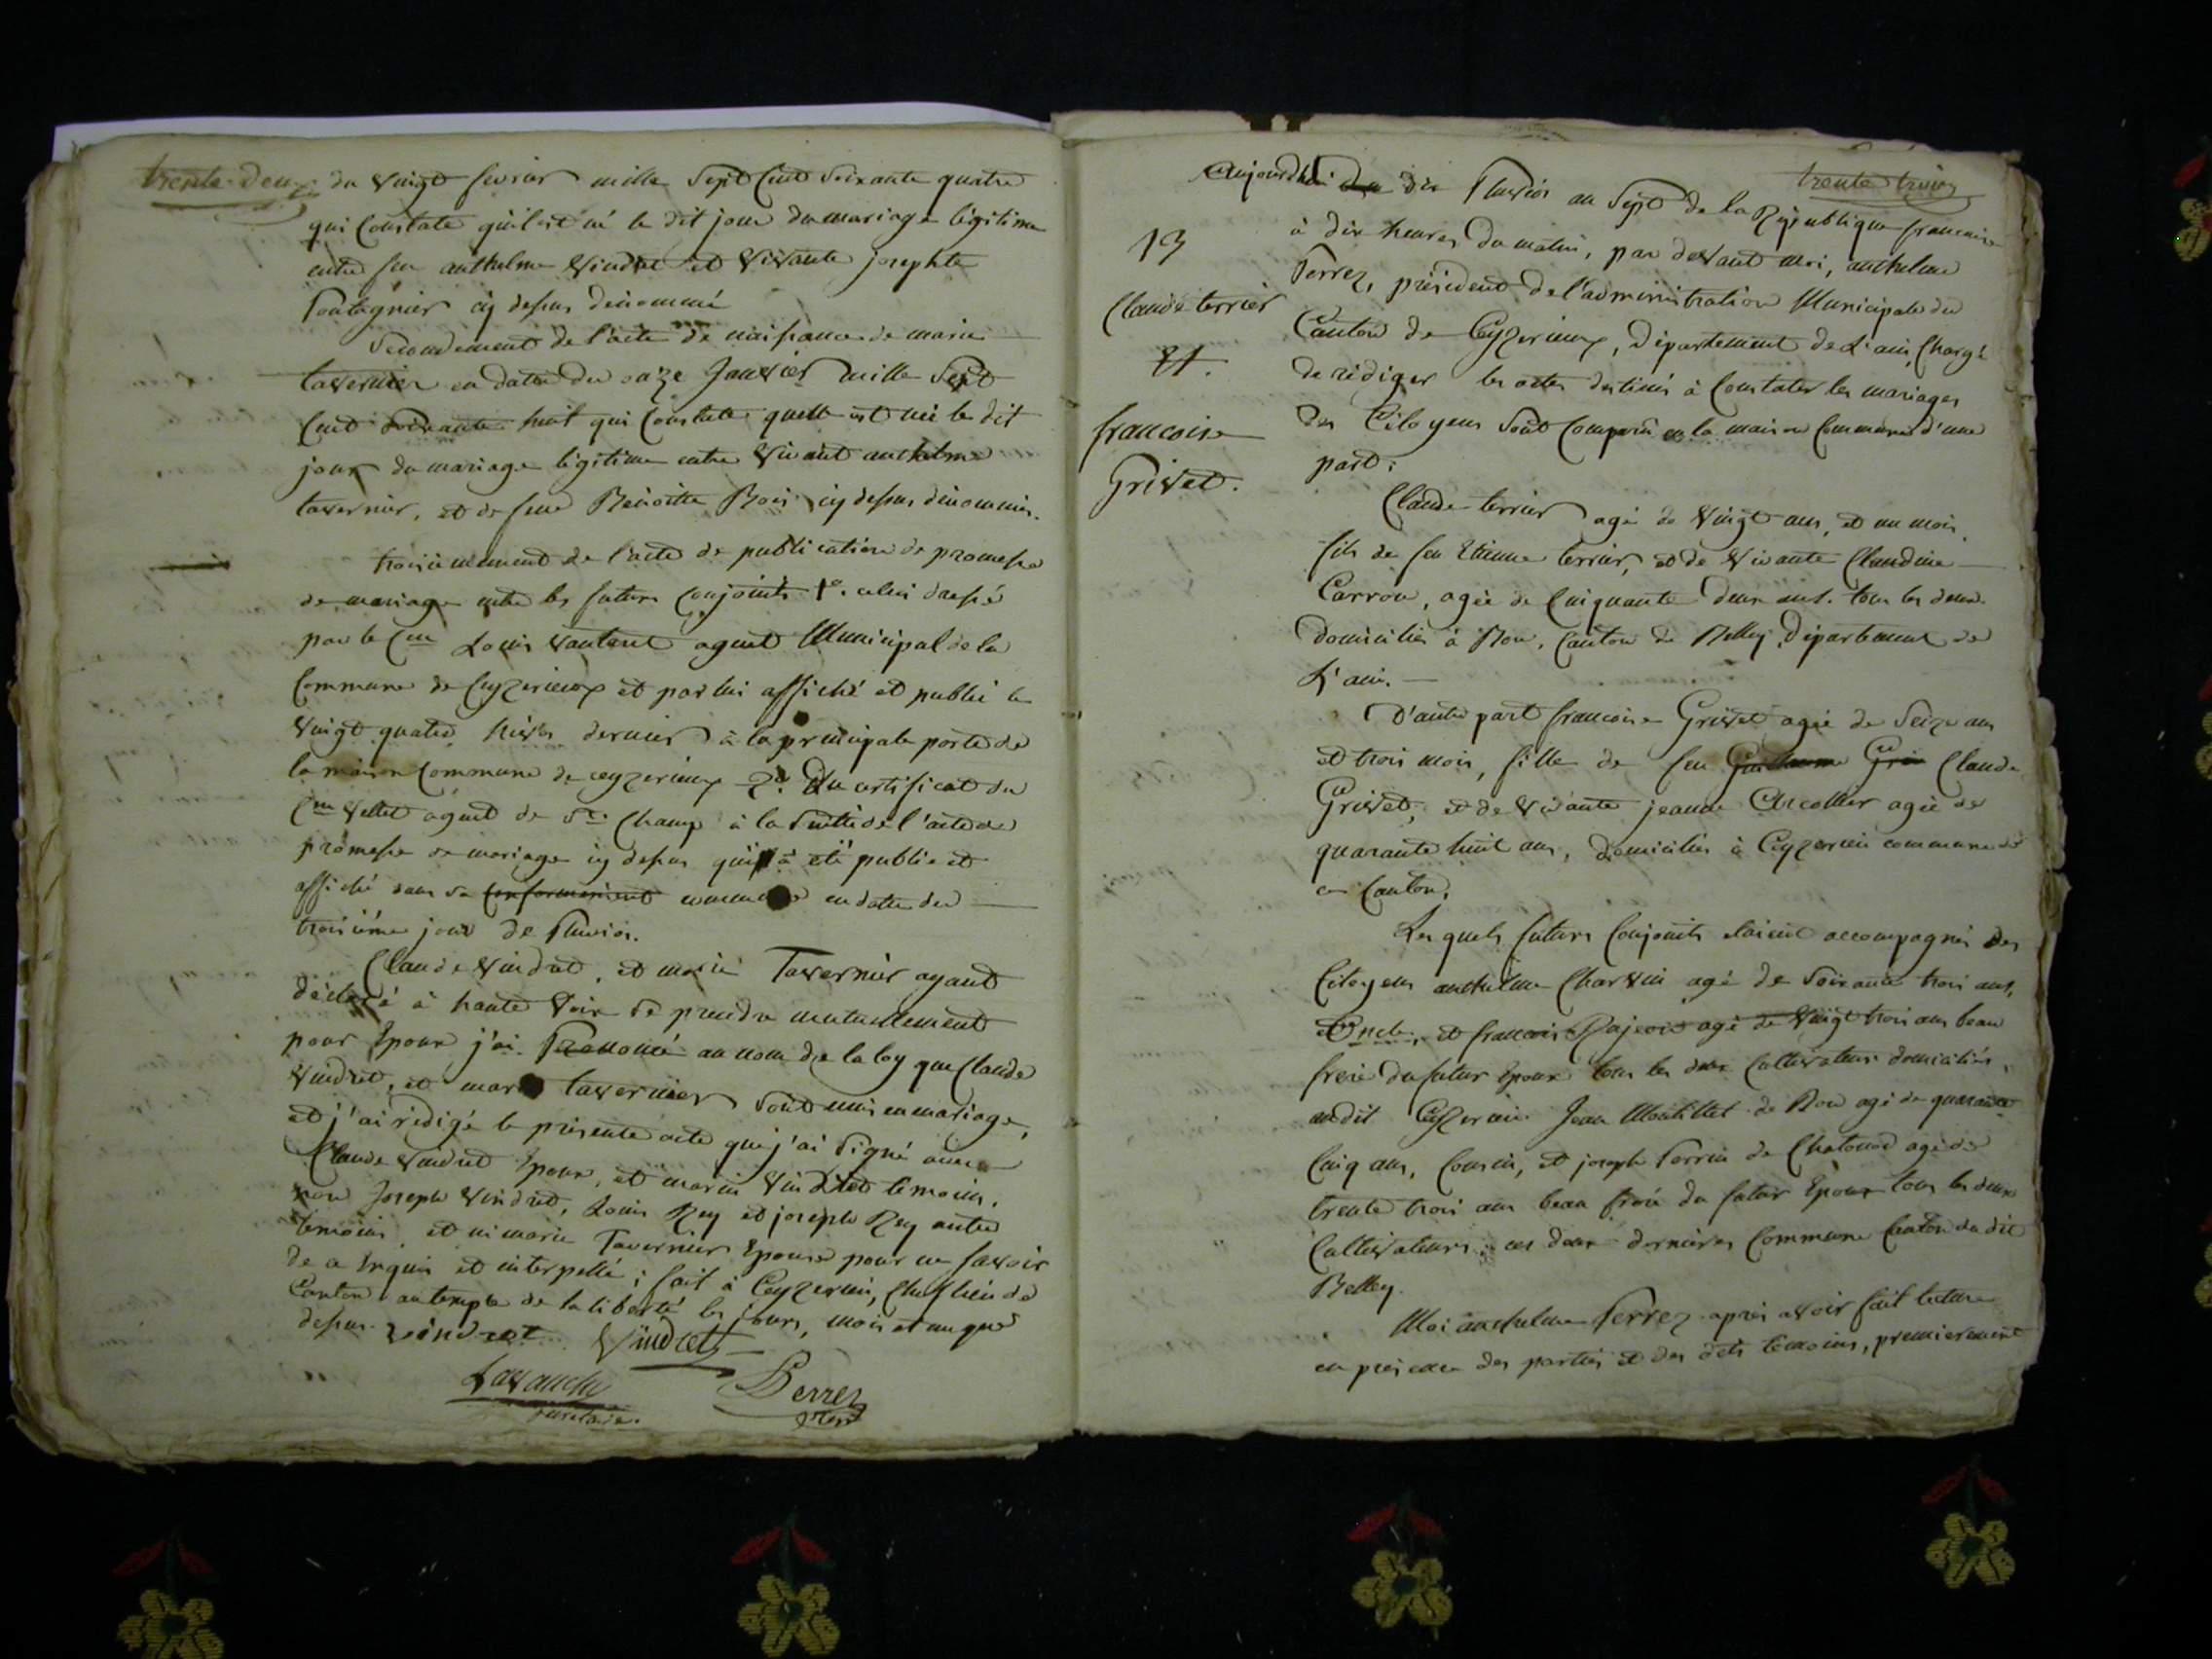 trente deux
du vingt fevrier mille sept cent soixante quatre
qui Constate qu'il est né le dit jour du mariage légitime
entre feu anthelme Vindret et vivante josephte
Pontagnier cy dessus dénommé
Secondement de l'acte de naissance de marie
tavernier en datte du onze Janvier mille Sept
Cent soixante huit qui Constate quelle est née le dit
jour du mariage légitime entre vivant anthelme
tavernier, et de feue Benoitte Bois cy dessus dénommés.
troisièmement de l'acte de publication de promesse
de mariage entre les futurs Conjoints 1°. celui dressé
par le Cen Louis vantent agent Municipal de la
Commune de Ceyzerieux et par lui affiché et publié le
vingt quatre nivos dernier à la principale porte de
la maison Commune de ceyzerieux 2°. Du certificat du
Cen vettet agent de St. Champ à la Suitte de l'acte de
promesse de mariage cy dessus qui a été publié et
affiché dans sa Conformement commune en datte du
troisième jour de Pluvios.
Claude Vindret, et marie Tavernier ayant
déclaré à haute voix se prendre mutuellement
pour Epoux j'ai Prononcé au nom de la loy que Claude
Vindret, et marie tavernier sont unis en mariage,
et j'ai rédigé le présente acte que j'ai signé avec
Claude Vindret Epoux, et marin Vindret temoin,
non Joseph Vindret, Louis Rey et joseph Rey autre
temoins, et ni marie Tavernier Epouse pour ne savoir
de ce Enquis et interpellé; fait à Ceyzerieu, Cheflieu de
Canton au temple de la liberté les jours, mois et an que
dessus. vindret Vindret
Lavanchy Perrez
Secretaire. Prest
trente trois
Aujourdhui du dix Pluvios an Sept de la République francaise
à dix heures du matin, par devant moi, anthelme
Perrez, président de l'administration Municipale du
Canton de Ceyzerieux, Département de L'ain, Chargé
de rédiger les actes destinés à Constater les mariages
des Citoyens Sont Comparu en la maison Commune d'une
part:
13
Claude terrier
Et.
francoise
Grivet.
Claude terrier agé de vingt ans, et un mois,
fils de feu Etienne terrier, et de vivante Claudine
Carron, agée de Cinquante deux ans. tous les deux
domiciliés à Bon, Canton de Belley, Département de
L'ain.
D'autre part francoise Grivet agée de Seize ans
et trois mois, fille de feu Guillaume Gri Claude
Grivet, et de vivante jeanne Chcollier agée de
quarante huit ans, domiciliés à Ceyzerieu commune de
ce Canton;
Les quels futurs Conjoints etaient accompagnés des
Citoyens anthelme Charvin agé de Soixante trois ans,
oncle, et francois Pajeois agé de vingt trois ans beau
frere du futur Epoux tous les deux Cultivateurs domiciliés,
audit Ceyzerieu Jean Montillet de Bon agé de quarante
Cinq ans, Cousin, et joseph Perrin de Chatonod agé de
trente trois ans beau frère du futur Epoux tous les deux
Cultivateurs, ces deux dernieres Commune Canton du dit
Belley.
Moi anthelme Perrez après avoir fait lecture
en présence des parties et des dits temoins, premierement